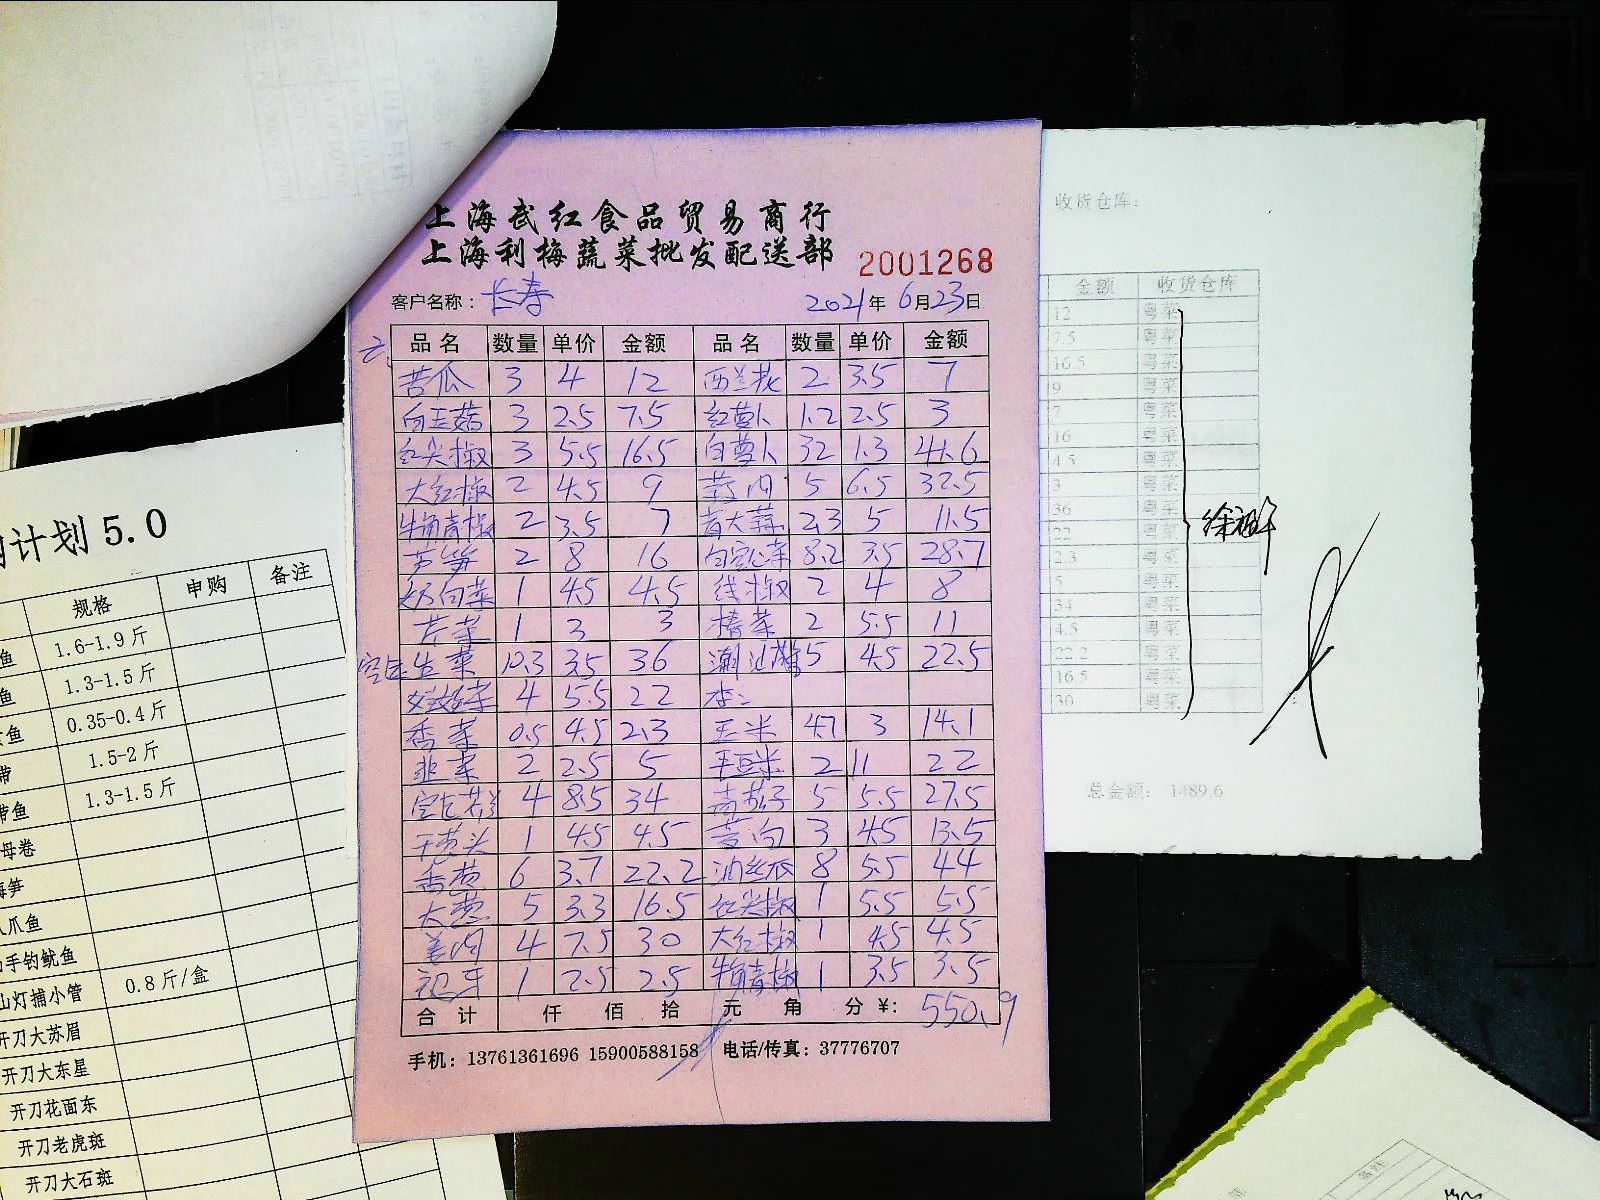 上海武红食品贸易商行
上海利梅蔬菜批发配送部
2001268
客户名称： 长寿 2021年6月23日
品名 数量 单价 金额 品名 数量 单价 金额
苦瓜 3 4 12 西兰花 2 3.5 7
白玉菇 3 2.5 7.5 红萝卜 1.2 2.5 3
红尖椒 3 5.5 16.5 白萝卜 32 1.3 41.6
大红椒 2 4.5 9 姜肉 5 6.5 32.5
牛角青椒 2 3.5 7 黄大蒜 2.3 5 11.5
芦笋 2 8 16 白空心菜 8.2 3.5 28.7
奶白菜 1 4.5 4.5 线椒 2 4 8
芹菜 1 3 3 椿菜 2 5.5 11
生菜 10.3 3.5 36 5 4.5 22.5
4 5.5 22 李:
香菜 0.5 4.5 2.3 玉米 4.7 3 14.1
韭菜 2 2.5 5 毛豆米 2 11 22
4 8.5 34 青茄子 5 5.5 27.5
干葱头 1 4.5 4.5 3 4.5 13.5
香葱 6 3.7 22.2 油丝瓜 8 5.5 44
大葱 5 3.3 16.5 红尖椒 1 5.5 5.5
姜肉 4 7.5 30 大红椒 1 4.5 4.5
1 2.5 2.5 牛角青椒 1 3.5 3.5
合计 仟 佰 拾 元 角 分 ¥: 550.9
手机：13761361696 15900588158 电话/传真：37776707
收货仓库：
金额 收货仓库
12 粤菜
7.5 粤菜
16.5 粤菜
9 粤菜
7 粤菜
16 粤菜
4.5 粤菜
3 粤菜
36 粤菜
22 粤菜
2.3 粤菜
5 粤菜
34 粤菜
4.5 粤菜
22.2 粤菜
16.5 粤菜
30 粤菜
总金额： 1489.6
计划 5.0
规格 申购 备注
鱼 1.6-1.9斤
鱼 1.3-1.5斤
鱼 0.35-0.4斤
带 1.5-2斤
带鱼 1.3-1.5斤
母卷
海笋
八爪鱼
手钓鱿鱼
山灯捕小管 0.8斤/盒
开刀大苏眉
开刀大东星
开刀花面东
开刀老虎斑
开刀大石斑
备注